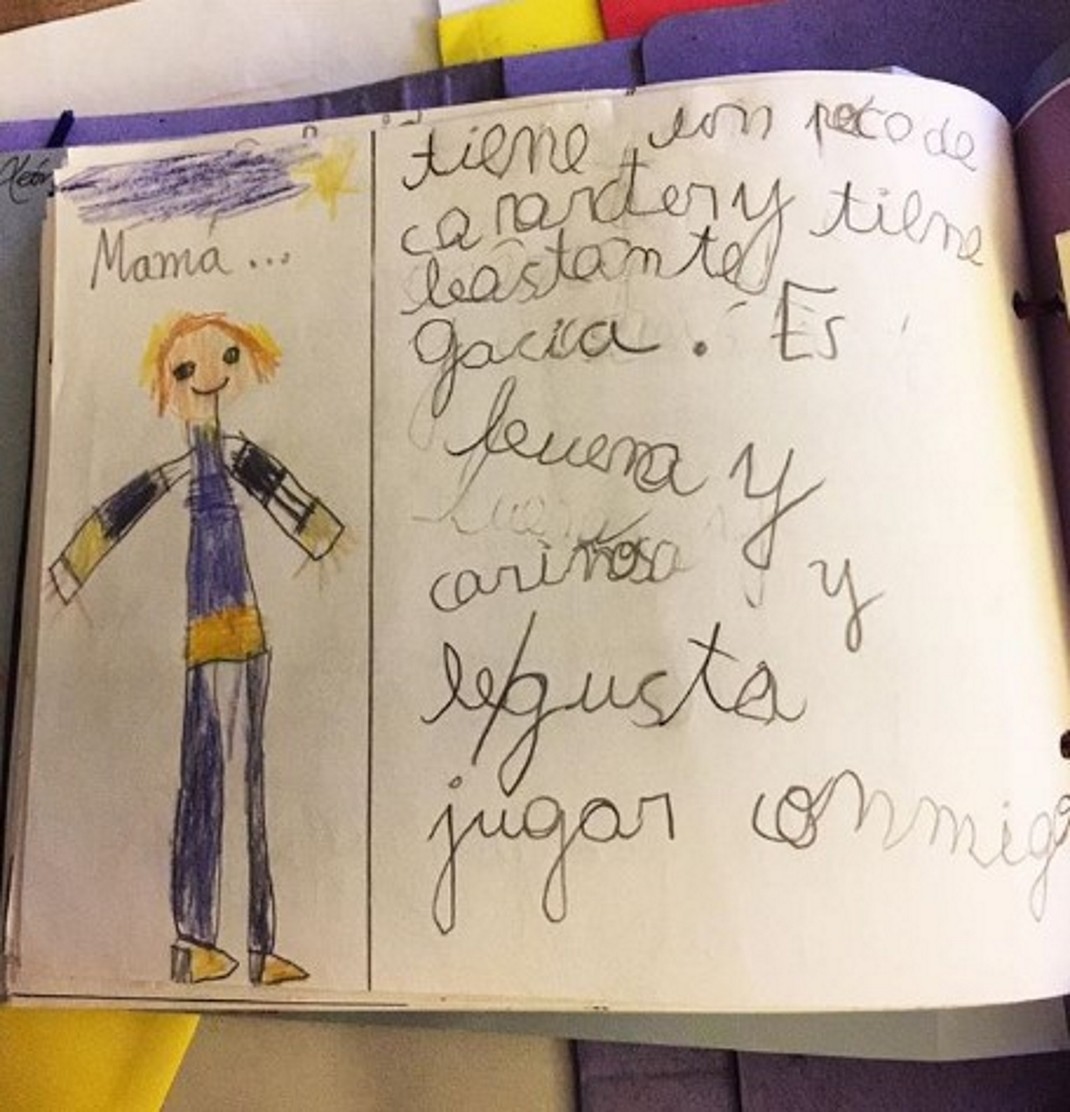 Mamá...
tiene un poco de
caracter y tiene
bastante
gacia. Es
buena y
cariñosa y
le/gusta
jugar conmigo